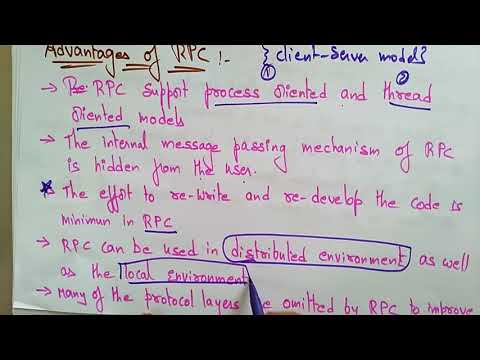 Advantages of RPC :- { client-Server model}
① ②
→ RPC Support process oriented and thread
oriented models
→ The internal message passing mechanism of RPC
is hidden from the user.
→ The effort to re-write and re-develop the code is
minimun in RPC
→ RPC can be used in distributed environment as well
as the local environment
→ Many of the protocol layers are omitted by RPC to improve